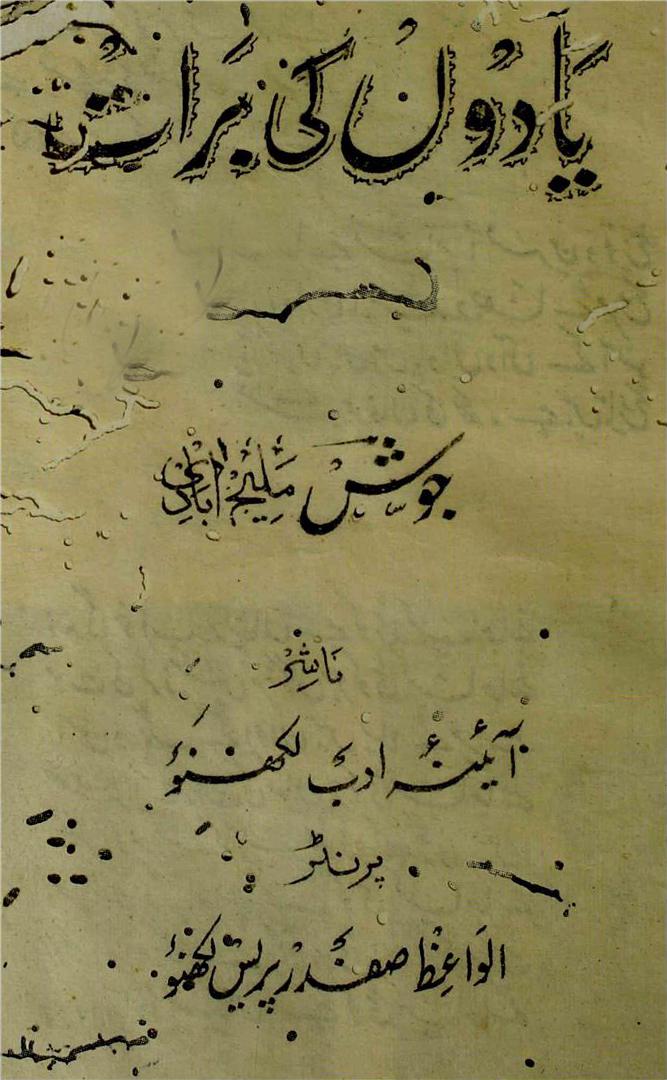 یادوں کی برات
جوش ملیح آبادی
ناشر
آئینۂ ادب لکھنؤ
پرنٹر
الواعظ صفدر پریس لکھنؤ